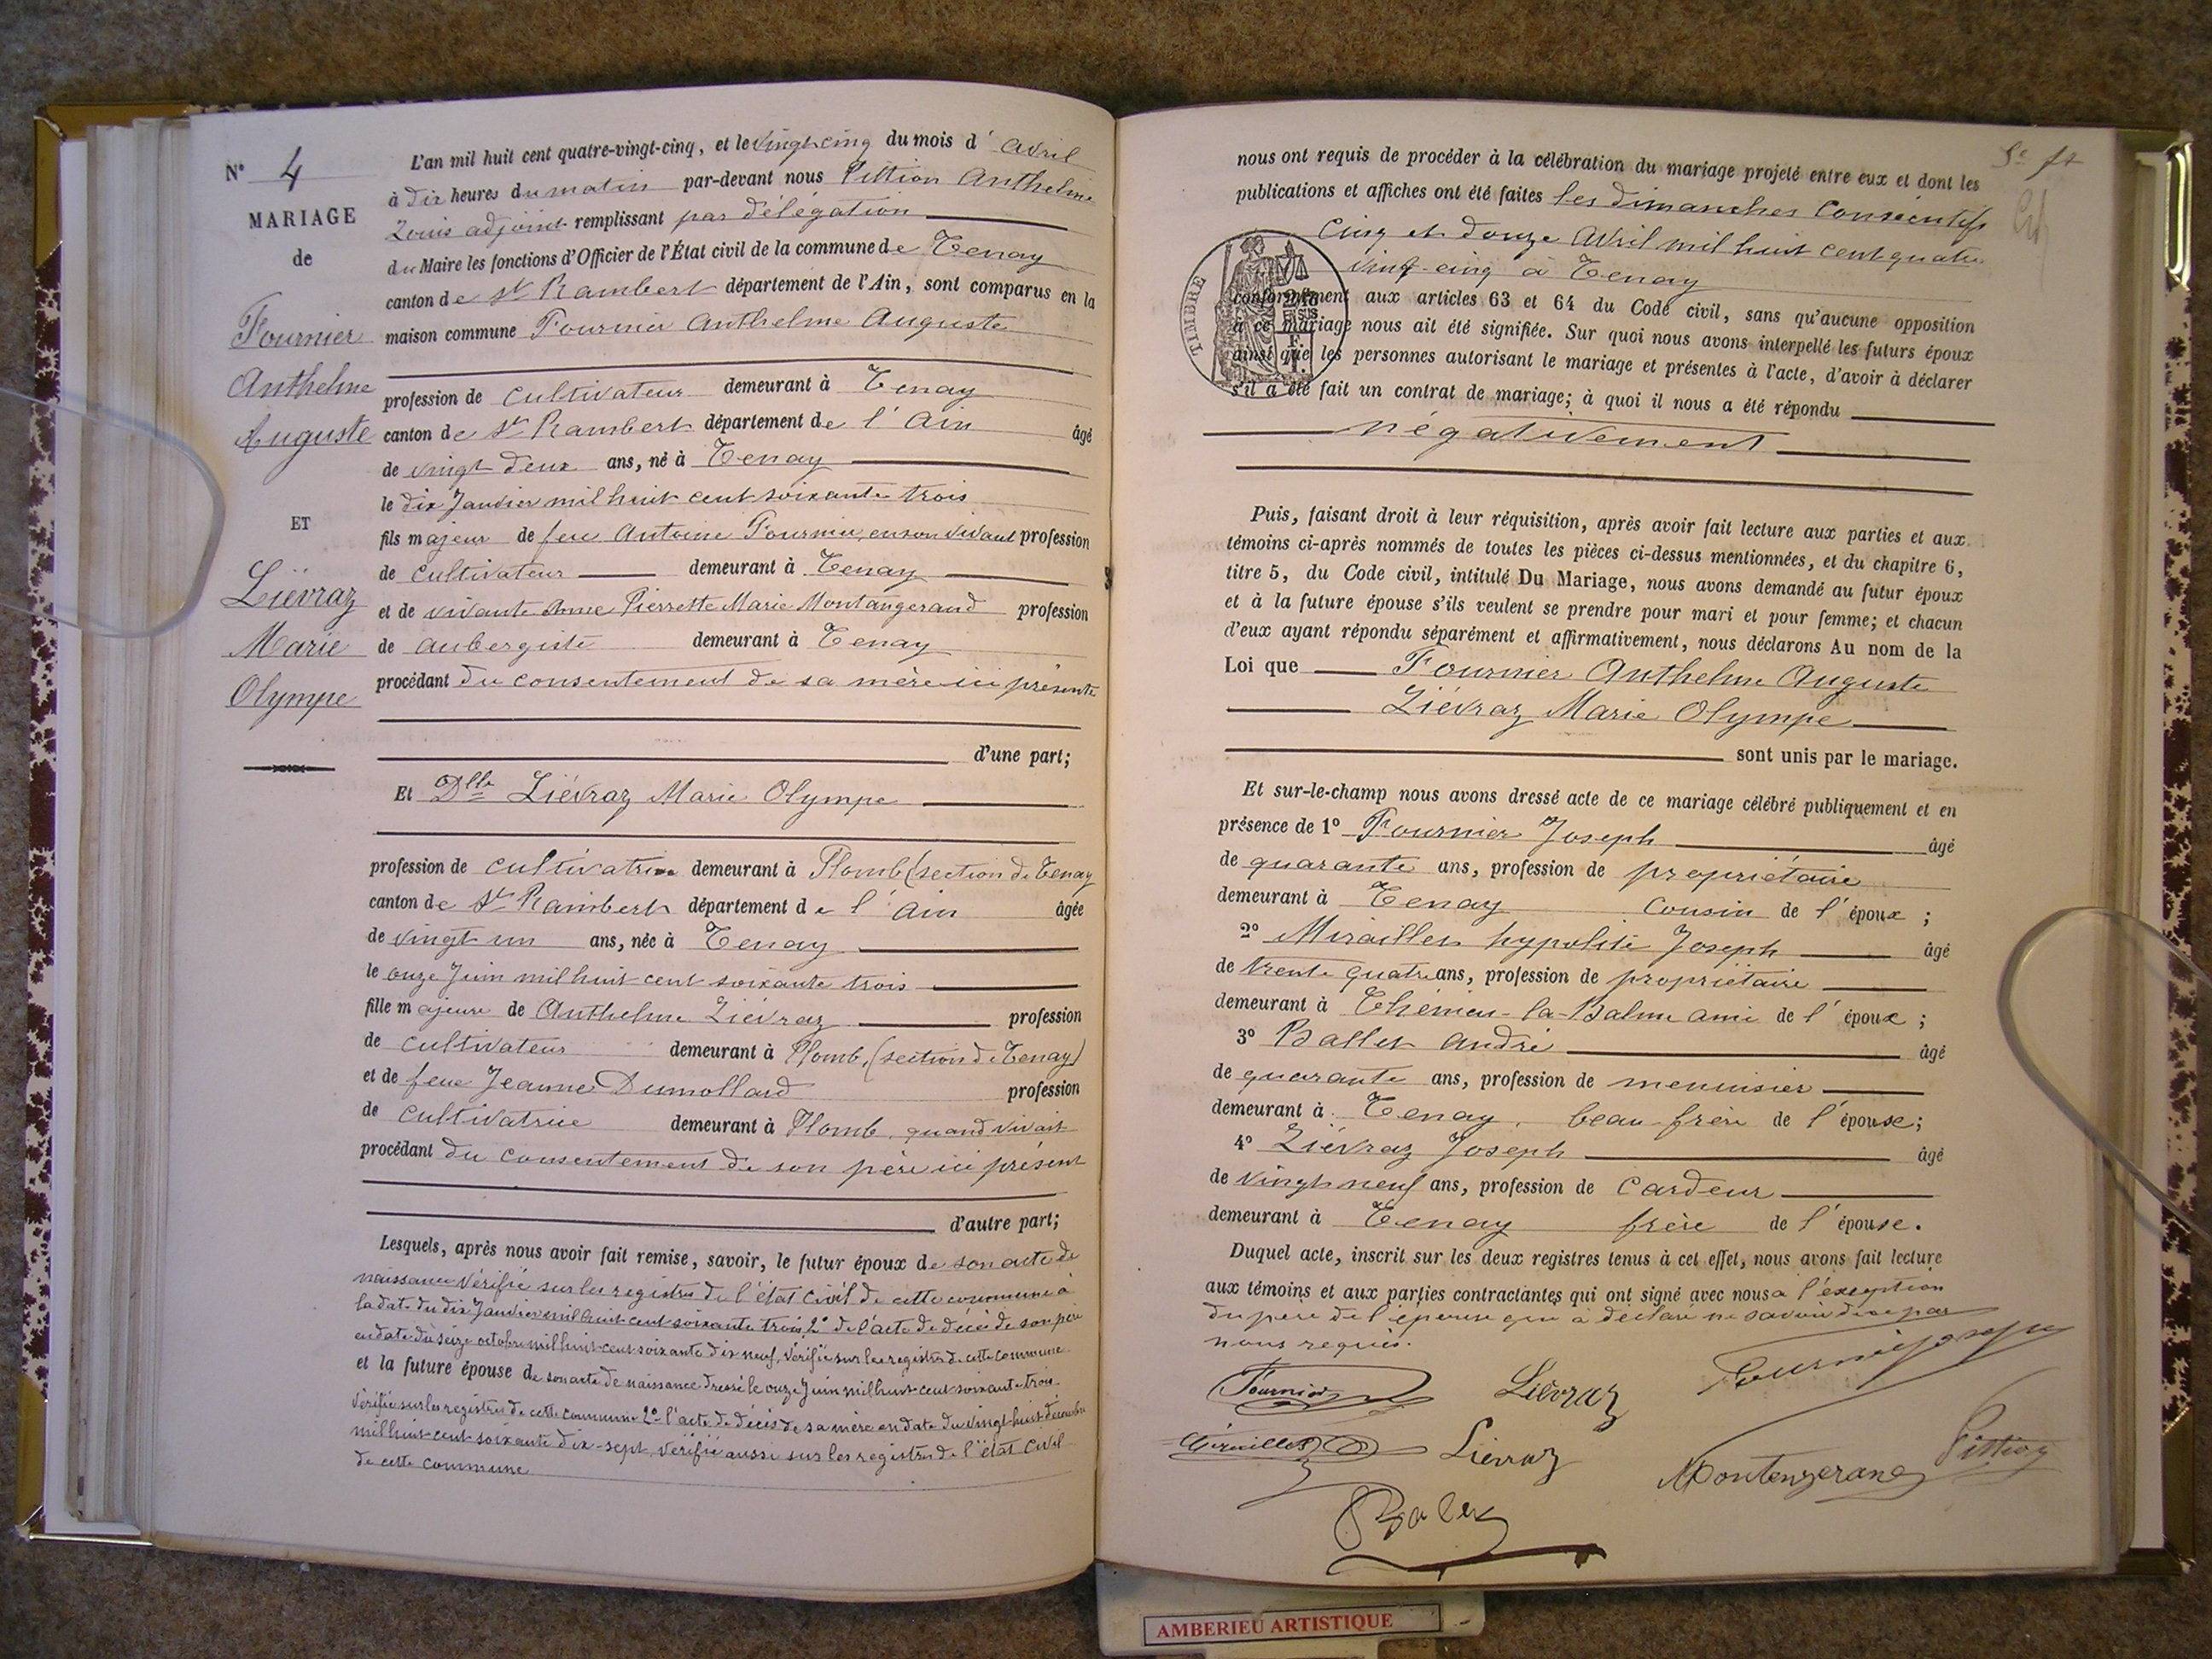 N° 4
MARIAGE
de
Fournier
Anthelme
Auguste
ET
Liévraz
Marie
Olympe
L'an mil huit cent quatre-vingt-cinq, et le vingt cinq du mois d' Avril
à dix heures du matin par-devant nous Pittion Anthelme
Louis adjoint remplissant par délégation
du Maire les fonctions d'Officier de l'État civil de la commune de Tenay
canton de St Rambert département de l'Ain, sont comparus en la
maison commune Fournier Anthelme Auguste
profession de cultivateur demeurant à Tenay
canton de St Rambert département de l'Ain âgé
de vingt deux ans, né à Tenay
le dix Janvier mil huit cent soixante trois
fils majeur de feu Antoine Fournier, en son vivant profession
de cultivateur demeurant à Tenay
et de vivante Anne Pierrette Marie Montangerand profession
de aubergiste demeurant à Tenay
procédant du consentement de sa mère ici présente
d'une part;
Et Dlle Liévraz Marie Olympe
profession de cultivatrice demeurant à Plomb (section de Tenay
canton de St Rambert département de l'Ain âgée
de vingt un ans, née à Tenay
le onze Juin mil huit cent soixante trois
fille majeure de Anthelme Liévraz profession
de cultivateur demeurant à Plomb, (section de Tenay)
et de feue Jeanne Dumollard profession
de cultivatrice demeurant à Plomb, quand vivait
procédant du consentement de son père ici présent
d'autre part;
Lesquels, après nous avoir fait remise, savoir, le futur époux de son acte de
naissance vérifié sur les registres de l'état civil de cette commune à
la date du dix Janvier mil huit cent soixante trois 2° de l'acte de décès de son père
en date du seize octobre mil huit cent soixante dix neuf, vérifié sur les registres de cette commune
et la future épouse de son acte de naissance dressé le onze Juin mil huit cent soixante trois
vérifié sur les registres de cette commune 2° l'acte de décès de sa mère en date du vingt-huit décembre
mil huit cent soixante dix-sept, vérifié aussi sur les registres de l'état civil
de cette commune
nous ont requis de procéder à la célébration du mariage projeté entre eux et dont les
publications et affiches ont été faites les dimanches consécutifs
cinq et douze Avril mil huit cent quatre
vingt-cinq à Tenay
TIMBRE
conformément aux articles 63 et 64 du Code civil, sans qu'aucune opposition
à ce mariage nous ait été signifiée. Sur quoi nous avons interpellé les futurs époux
ainsi que les personnes autorisant le mariage et présentes à l'acte, d'avoir à déclarer
s'il a été fait un contrat de mariage; à quoi il nous a été répondu
négativement
Puis, faisant droit à leur réquisition, après avoir fait lecture aux parties et aux
témoins ci-après nommés de toutes les pièces ci-dessus mentionnées, et du chapitre 6,
titre 5, du Code civil, intitulé Du Mariage, nous avons demandé au futur époux
et à la future épouse s'ils veulent se prendre pour mari et pour femme; et chacun
d'eux ayant répondu séparément et affirmativement, nous déclarons Au nom de la
Loi que Fournier Anthelme Auguste
Liévraz Marie Olympe
sont unis par le mariage.
Et sur-le-champ nous avons dressé acte de ce mariage célébré publiquement et en
présence de 1° Fournier Joseph âgé
de quarante ans, profession de propriétaire
demeurant à Tenay cousin de l'époux ;
2° Mirailles hypolite Joseph âgé
de trente quatre ans, profession de propriétaire
demeurant à Chémieu-la-Balme ami de l'époux ;
3° Ballet André âgé
de quarante ans, profession de menuisier
demeurant à Tenay, beau-frère de l'épouse;
4° Liévraz Joseph âgé
de vingt neuf ans, profession de cardeur
demeurant à Tenay frère de l'épouse.
Duquel acte, inscrit sur les deux registres tenus à cet effet, nous avons fait lecture
aux témoins et aux parties contractantes qui ont signé avec nous à l'exception
du père de l'épouse qui à déclaré ne savoir de ce par
nous requis.
Fournier Liévraz Fournier Joseph
Mirailles Liévraz Montangerand Pittion
Balet
AMBERIEU ARTISTIQUE